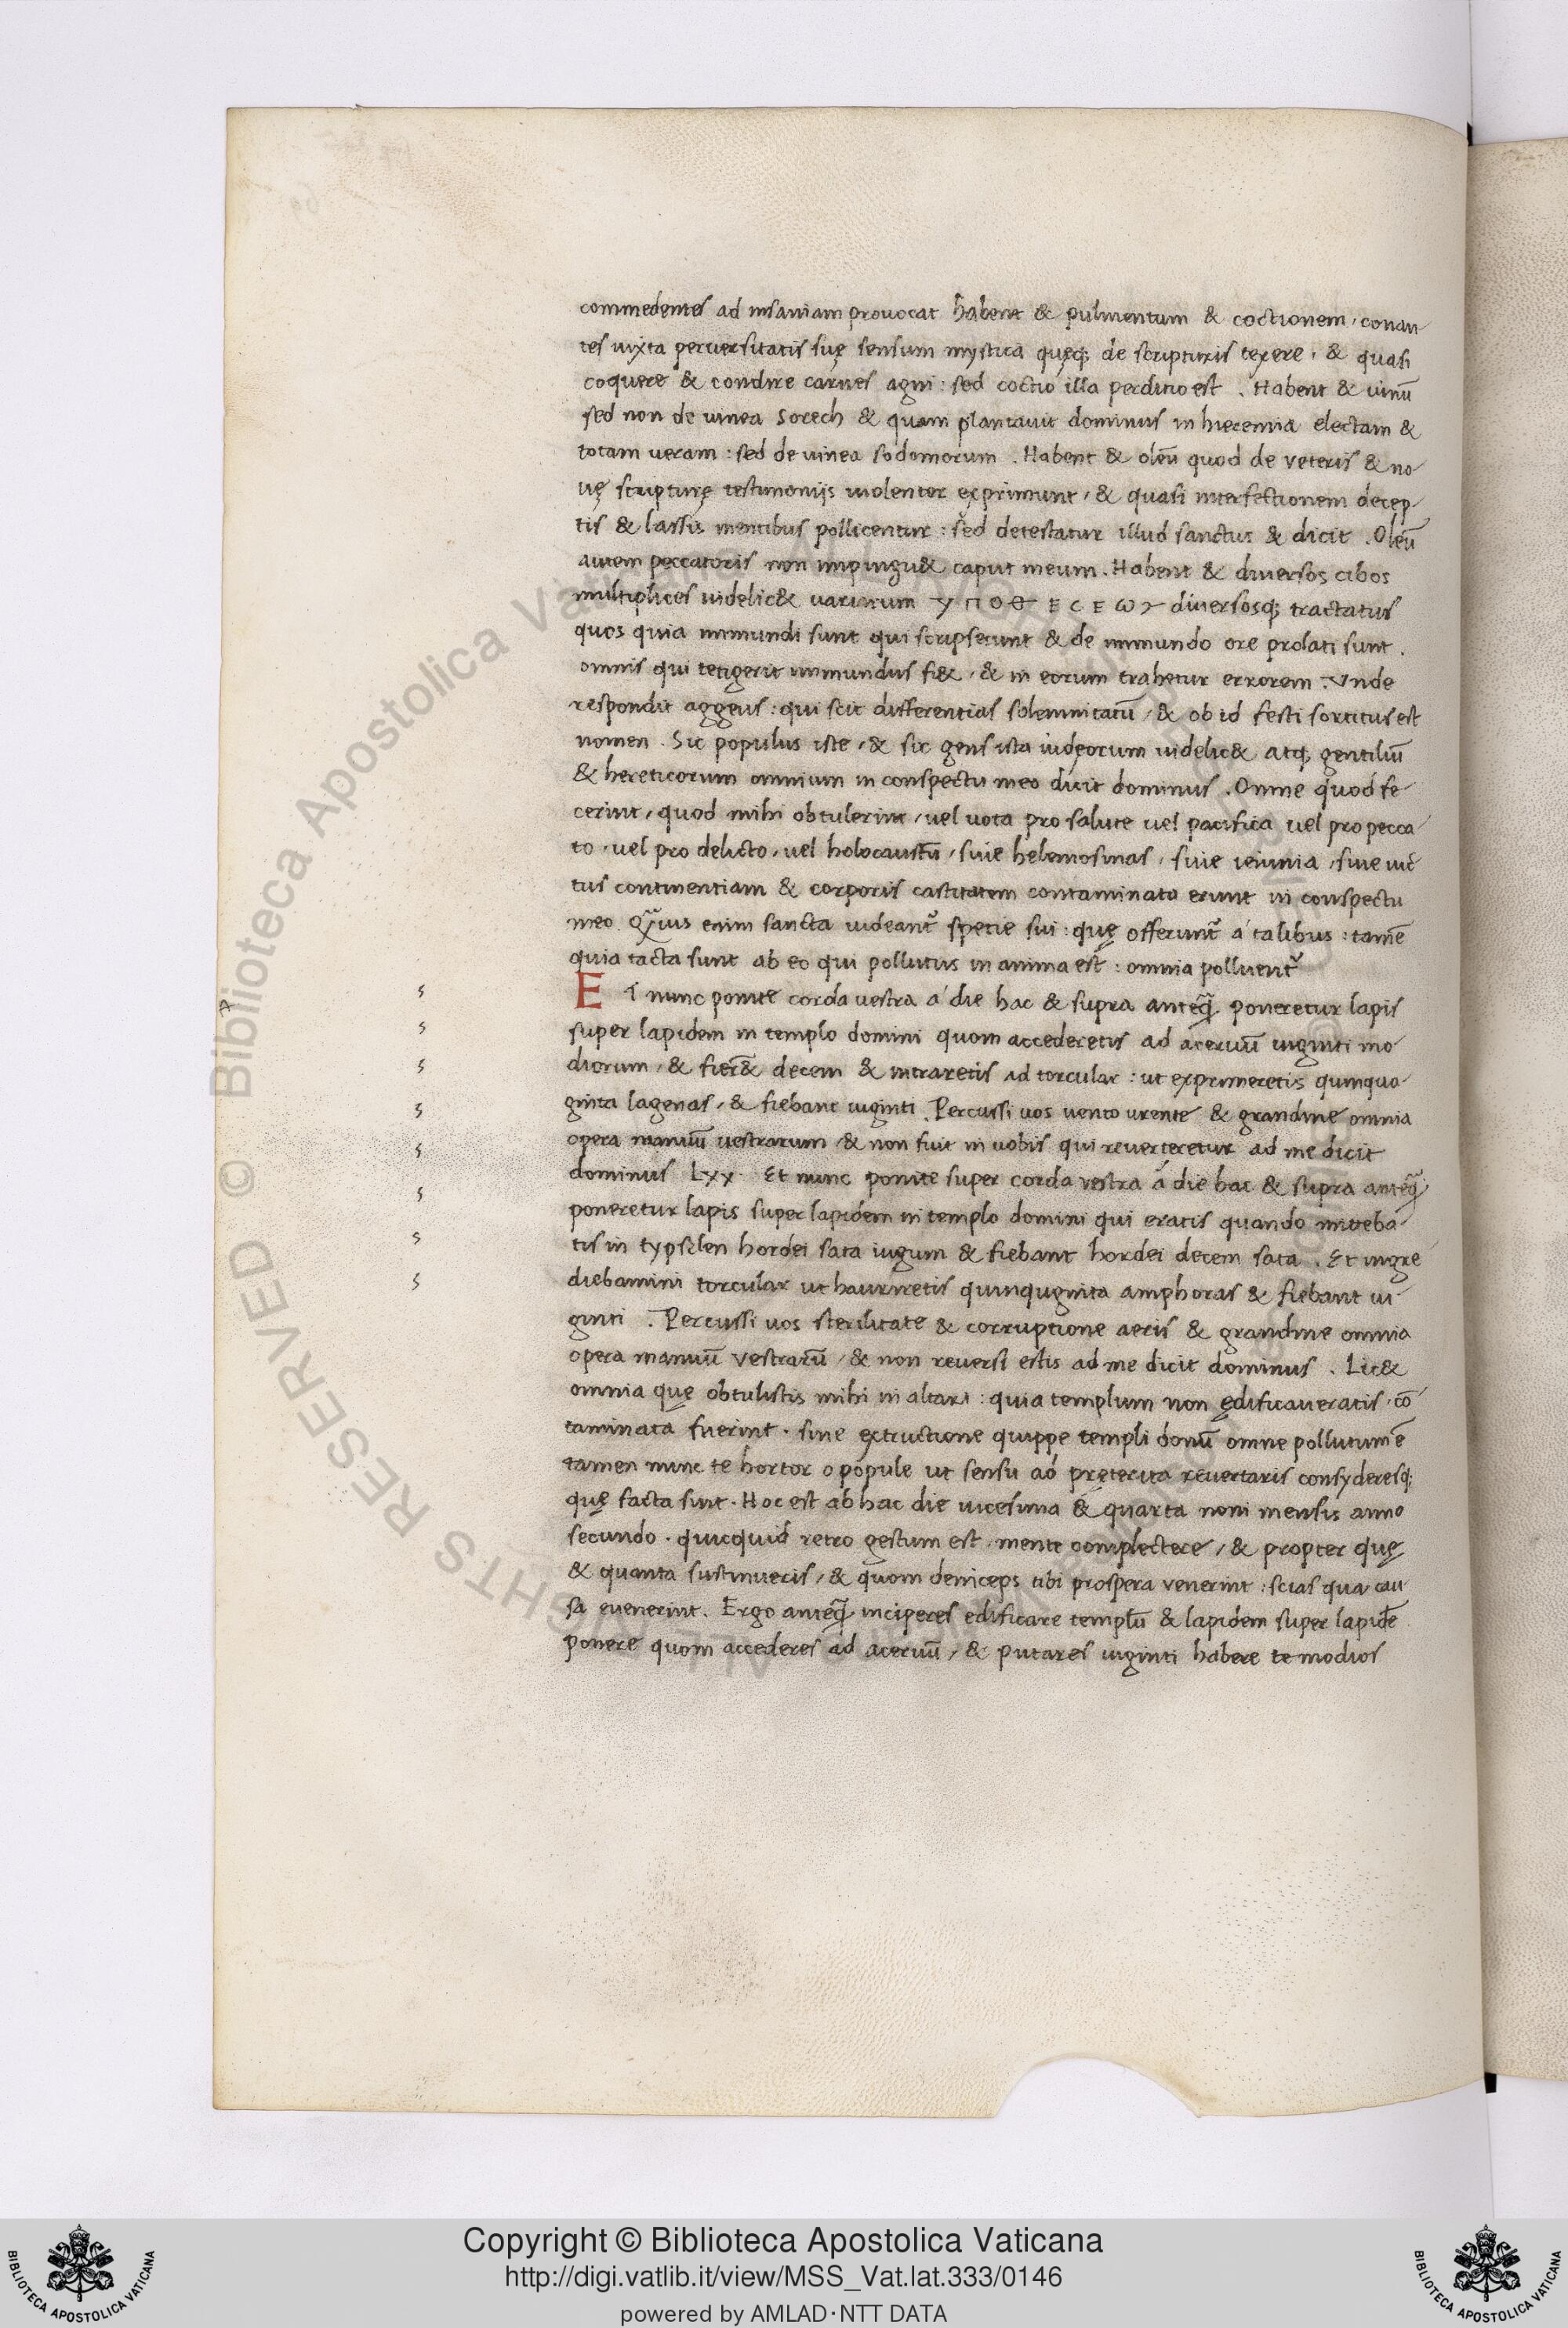 commedentes ad insaniam prouocat habent & pulmentum & coctionem, conan
tes iuxta peruersitatis suę sensum mystica quęq; de scripturis texere, & quasi
coquere & condire carnes agni : sed coctio illa perditio est . Habent & uinū
sed non de uinea Sorech & quam plantauit dominus in hieremia electam &
totam ueram : sed de uinea sodomorum . Habent & oleū quod de veteris & no
uę scripturę testimonijs uiolenter exprimunt, & quasi interfectionem decep
tis & lassis mentibus pollicentur : sed detestatur illud sanctus & dicit . Oleū
autem peccatoris non impingu& caput meum . Habent & diuersos cibos
multiplices uidelic& uariarum ΥΠΟΘΕCΕωΥ diuersosq; tractatus
quos quia immundi sunt qui scripserunt & de immundo ore prolati sunt .
omnis qui tetigerit immundus fi&, & in eorum trahetur errorem . Vnde
respondit aggeus : qui scit differentias solemnitatū, & ob id festi sortitus est
nomen . Sic populus iste, & sic gens ista iudęorum uidelic& atq; gentiliū
& hereticorum omnium in conspectu meo dicit dominus . Omne quod fe
cerint, quod mihi obtulerint, uel uota pro salute uel pacifica uel pro pecca
to, uel pro delicto, uel holocaustū, siue helemosinas, siue ieiunia, siue uic
tus continentiam & corporis castitatem contaminata erunt in conspectu
meo . Q̃uis enim sancta uideant᷑ specie sui : quę offerunt᷑ á talibus : tamē
quia tacta sunt ab eo qui pollutus in anima est : omnia polluent᷑
ET nunc ponite corda uestra á die hac & supra anteq̃ poneretur lapis
super lapidem in templo domini quom accederetis ad aceruū uiginti mo
diorum, & fier& decem & intraretis ad torcular : ut exprimeretis quinqua
ginta lagenas, & fiebant uiginti . Percussi uos uento urente & grandine omnia
opera manuū uestrarum & non fuit in uobis qui reuerteretur ad me dicit
dominus Lxx . Et nunc ponite super corda vestra á die hac & supra anteq̃
poneretur lapis super lapidem in templo domini qui eratis quando mitteba
tis in typselen hordei sata uigum & fiebant hordei decem sata . Et ingre
diebamini torcular ut hauriretis quinquginta amphoras & fiebant ui
ginti . Percussi uos sterilitate & corruptione aeris & grandine omnia
opera manuū vestrarū, & non reuersi estis ad me dicit dominus . Lic&
omnia quę obtulistis mihi in altari : quia templum non ędificaueratis, cō
taminata fuerint . sine extructione quippe templi donū omne pollutum ē
tamen nunc te hortor o popule ut sensu ad pręterita reuertaris consyderesq;
quę facta sint . Hoc est ab hac die uicesima & quarta noni mensis anno
secundo . quicquid retro gestum est, mente complectere, & propter quę
& quanta sustinueris, & quom deniceps tibi prospera venerint : scias qua cau
sa euenerint . Ergo anteq̃ inciperes edificare templū & lapidem super lapidē
ponere quom accederes ad aceruū, & putares uiginti habere te modios
Copyright © Biblioteca Apostolica Vaticana
http://digi.vatlib.it/view/MSS_Vat.lat.333/0146
powered by AMLAD·NTT DATA